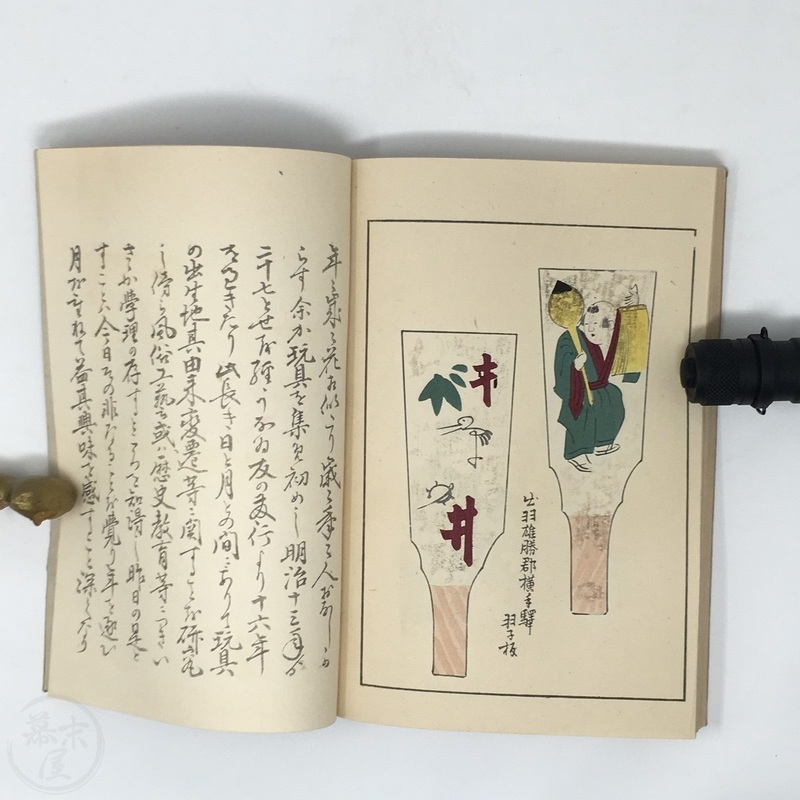 年々歳々花相似たり歳々年々人おなしか
らす余か玩具を集め初めし明治十三年
二十七とせを經 友の發行より十六年
をすきたり此長き日と月との間に 玩具
の出生地其由来變遷等に関することを研究
し傍ら風俗工藝或ハ歴史教育等につきい
さゝか學理の存するところを知得し昨日の是と
することハ今日その非なることを覺り年を逐ひ
月を重ねて益其興味を感すること深くなり
出羽雄勝郡横手驛
羽子板
井
幕末屋